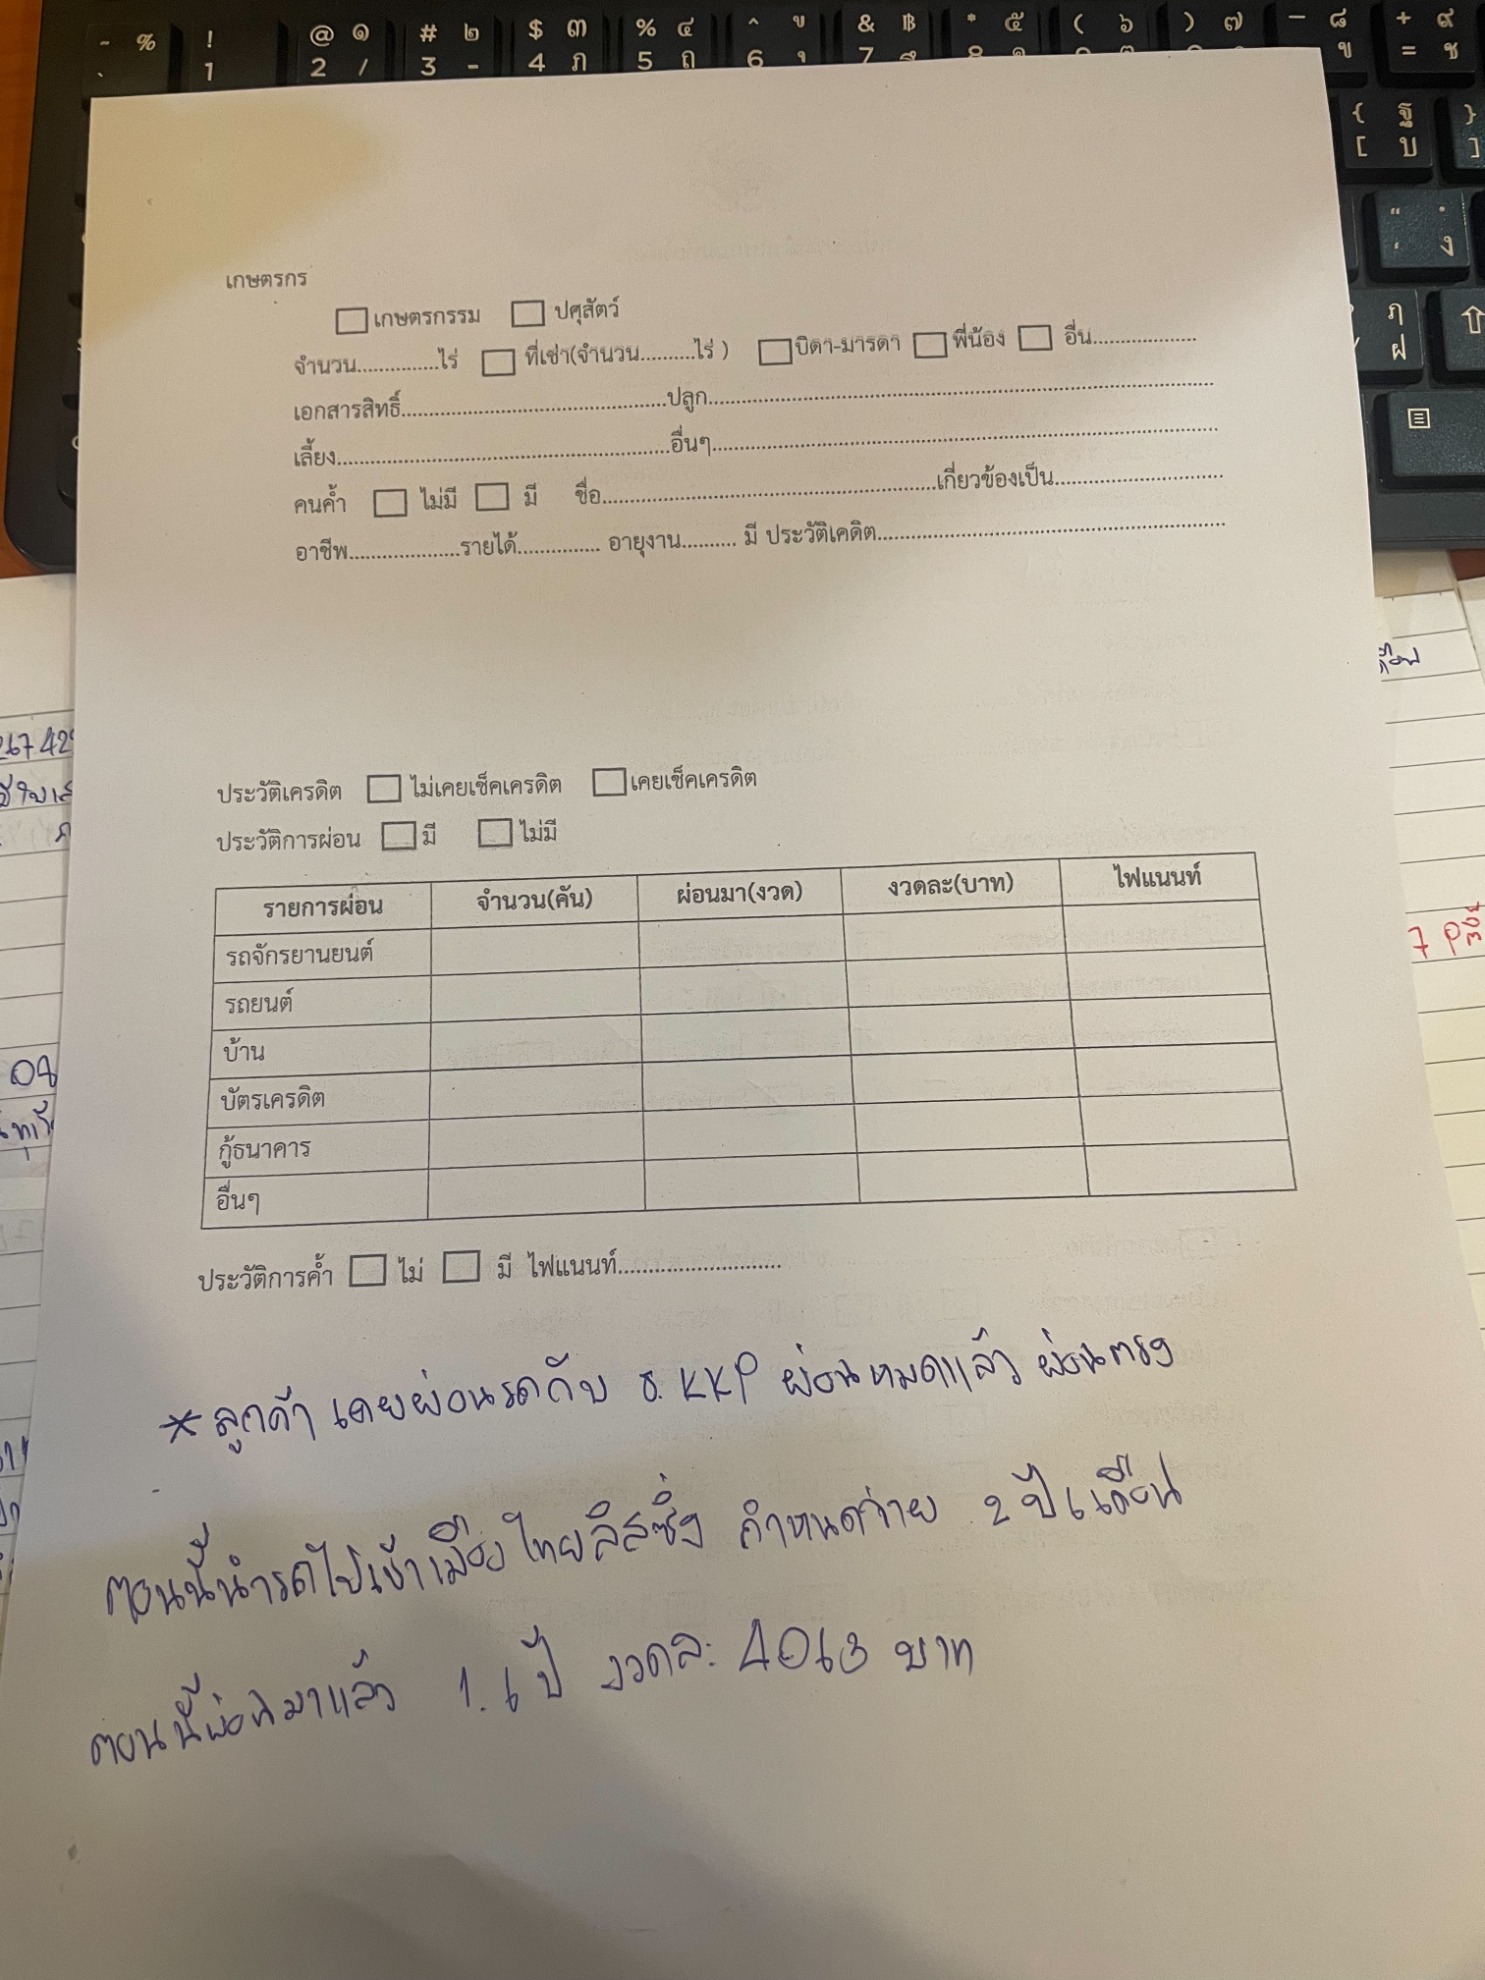 เกษตรกร
☐ เกษตรกรรม ☐ ปศุสัตว์
จำนวน...............ไร่ ☐ ที่เช่า(จำนวน..........ไร่ ) ☐ บิดา-มารดา ☐ พี่น้อง ☐ อื่น...................
เอกสารสิทธิ์................................................ปลูก............................................................................................
เลี้ยง.............................................................อื่นๆ............................................................................................
คนค้ำ ☐ ไม่มี ☐ มี ชื่อ.............................................................เกี่ยวข้องเป็น...............................
อาชีพ....................รายได้............... อายุงาน.......... มี ประวัติเคดิต................................................................
ประวัติเครดิต ☐ ไม่เคยเช็คเครดิต ☐ เคยเช็คเครดิต
ประวัติการผ่อน ☐ มี ☐ ไม่มี
รายการผ่อน จำนวน(คัน) ผ่อนมา(งวด) งวดละ(บาท) ไฟแนนท์
รถจักรยานยนต์
รถยนต์
บ้าน
บัตรเครดิต
กู้ธนาคาร
อื่นๆ
ประวัติการค้ำ ☐ ไม่ ☐ มี ไฟแนนท์...........................
*ลูกค้า เคยผ่อนรถกับ ธ. KKP ผ่อนหมดแล้ว ผ่อนตรง
ตอนนี้นำรถไปเข้าเมืองไทยลิสซิ่ง กำหนดจ่าย 2 ปี 6 เดือน
ตอนนี้ผ่อนมาแล้ว 1.6 ปี งวดละ 4063 บาท